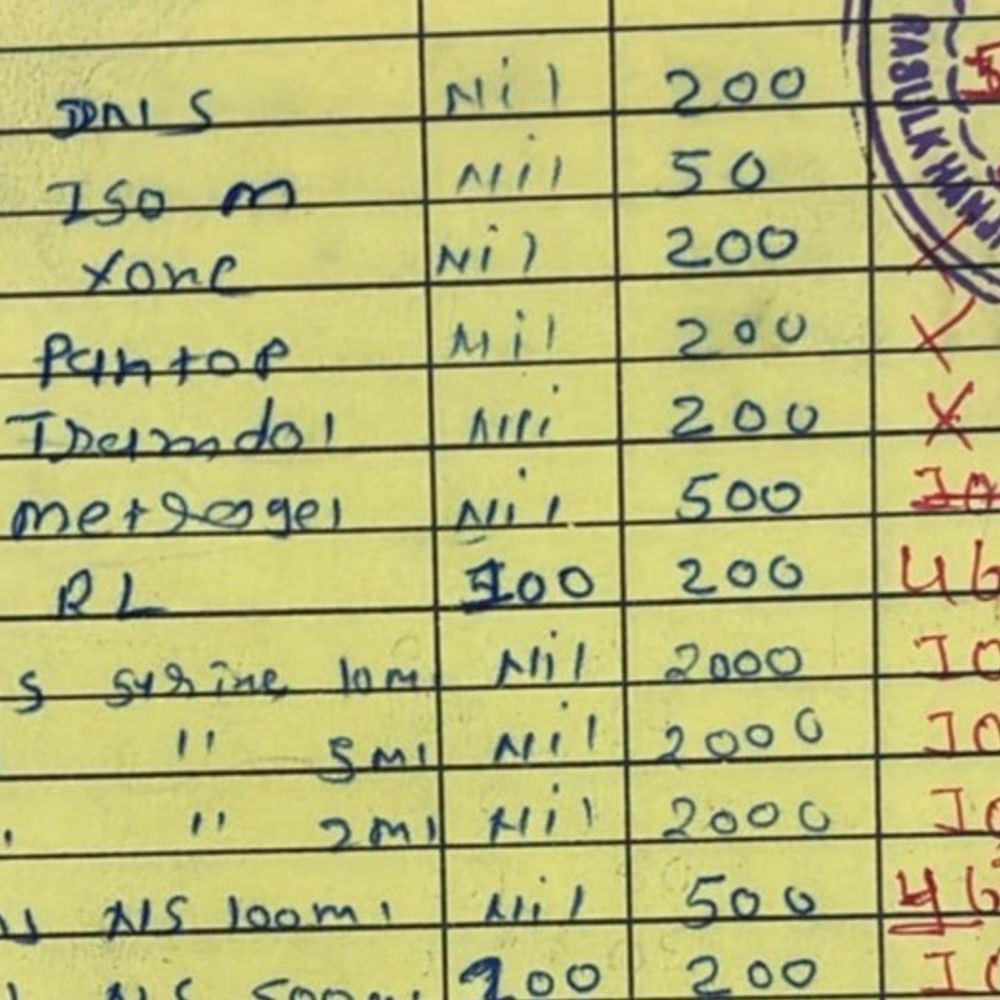 DNS Nil 200
Iso m Nil 50
Xone Nil 200 X
Pantop Nil 200 X
Tramdol Nil 200 X
metrogel Nil 500
RL 100 200
s syrine 10ml Nil 2000
" 5ml Nil 2000
" 2ml Nil 2000
NS 100ml Nil 500
NS 500ml 100 200
RABULKHAN